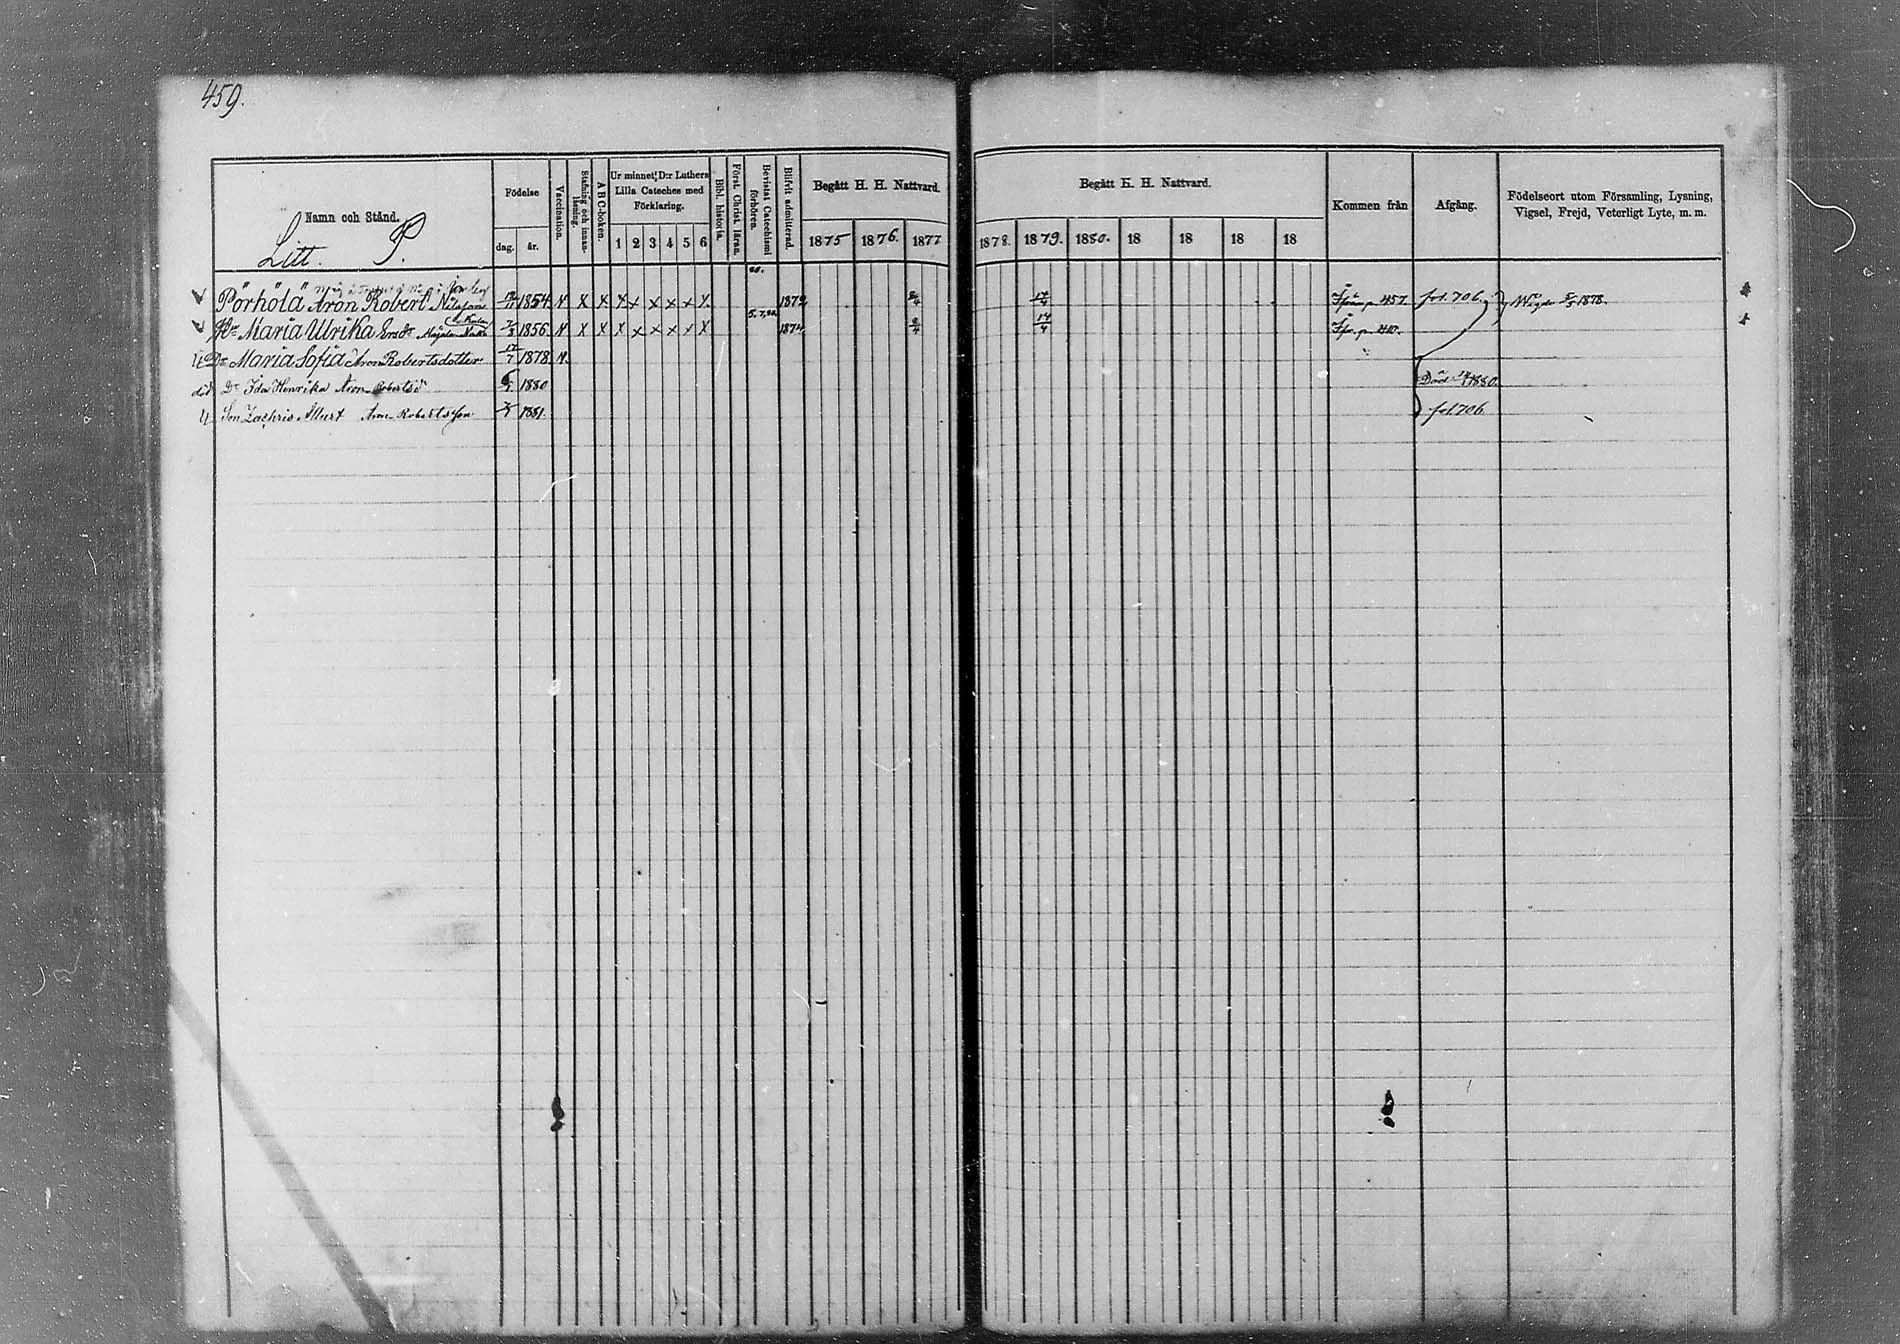 459.
Namn och Stånd.
Litt. P.
Födelse
dag. år.
Vaccination.
Stafning och innanläsning.
ABC-boken.
Ur minnet, D:r Luthers
Lilla Cateches med
Förklaring.
1 2 3 4 5 6
Bibl. historia.
Först. Christ. läran.
Bevistat Catechismi
förhören.
Blifvit admitterad.
Begått H. H. Nattvard.
1875 1876. 1877
Begått H. H. Nattvard.
1878. 1879. 1880. 18 18 18 18
Kommen från
Afgång.
Födelseort utom Församling, Lysning,
Vigsel, Frejd, Veterligt Lyte, m. m.
Pörhölä Aron Robert Nilsson 1854. X X X X X X X X 1872 17/4 p. 457. fol. 706.
Maria Ulrika 7/3 1856. X X X X X X X X 5, 7, 1874 14/4 p. 410. 1878.
Dr Maria Sofia Aron Robertsdotter 17/7 1878
död Dr Ida Henrika Aron Robertsd 1880 Död 1880.
Son Zachris Albert Aron Robertsson 1881. fol 706.